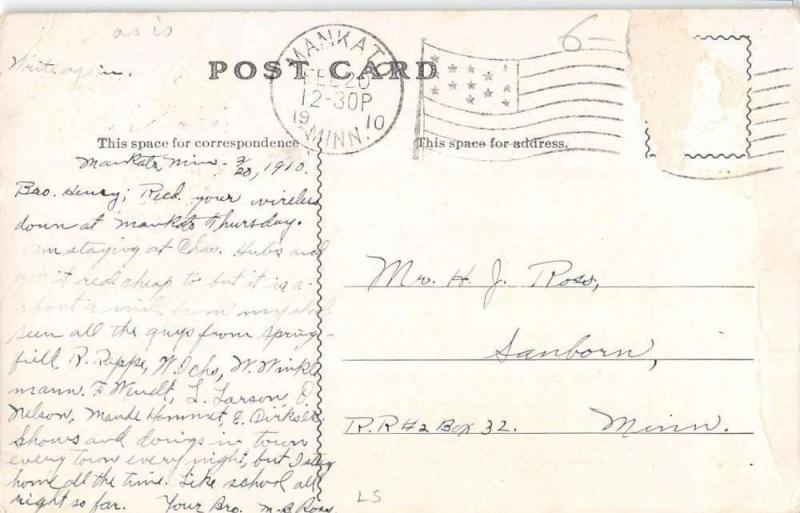 as is
6-
Write again.
POST CARD
MANKATO
FEB 20
12-30P
19 10
MINN.
This space for correspondence
This space for address.
Mankato, Minn. 2/20, 1910.
Bro. Henry; Recd. your wireless
down at Mankato Thursday.
Am staying at Chas. Hubs and
got it red cheap to but it is a-
about a mile from my shol
seen all the guys from Spring-
field, R. Rappe, W. Ochs, W. Winkle
mann. F Wendt, L. Larson, O.
Nelson, Maude Hammet, E. Dirkser.
Shows and doings in town
every town every night, but I stay
home all the time. Like school all
right so far. Your Bro. M. B Ross.
Mr. H. J. Ross,
Sanborn,
R.R #2 Box 32. Minn.
LS